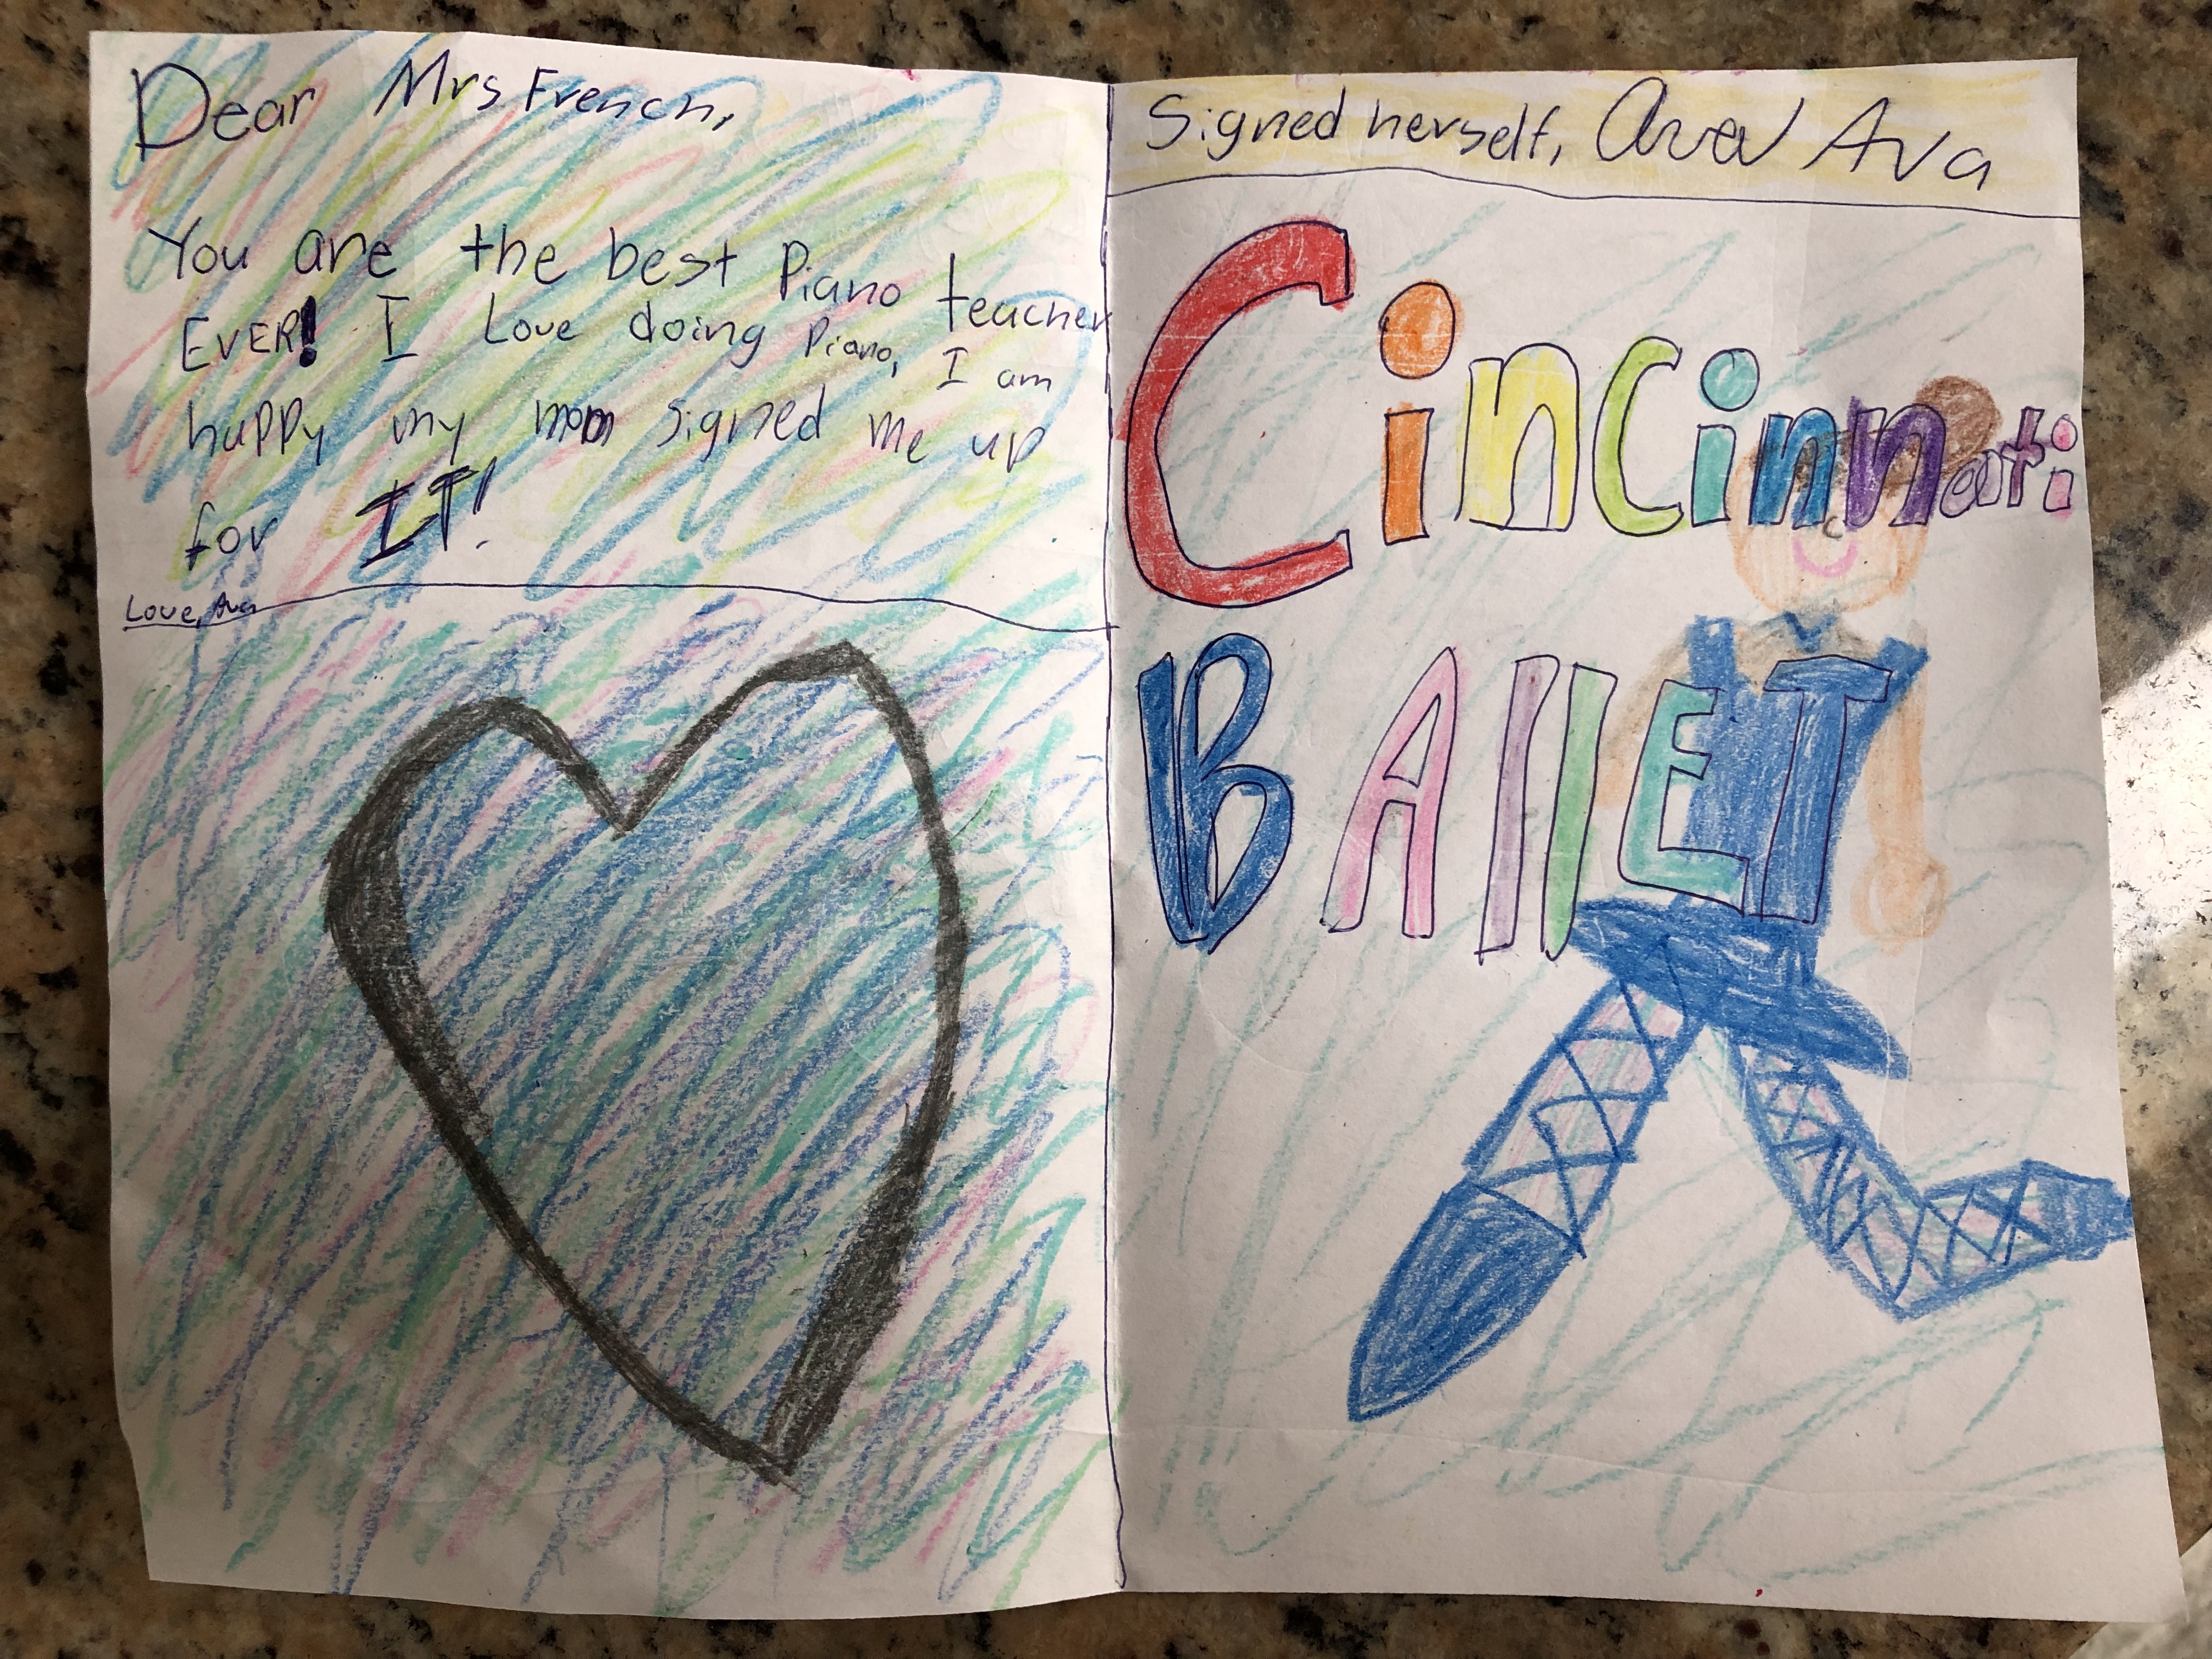 Dear Mrs French,
You are the best Piano teacher
EVER! I Love doing Piano, I am
happy my mom signed me up
for IT!
Love, Ava
Signed herself, Ava Ava
Cincinnati
BAllET